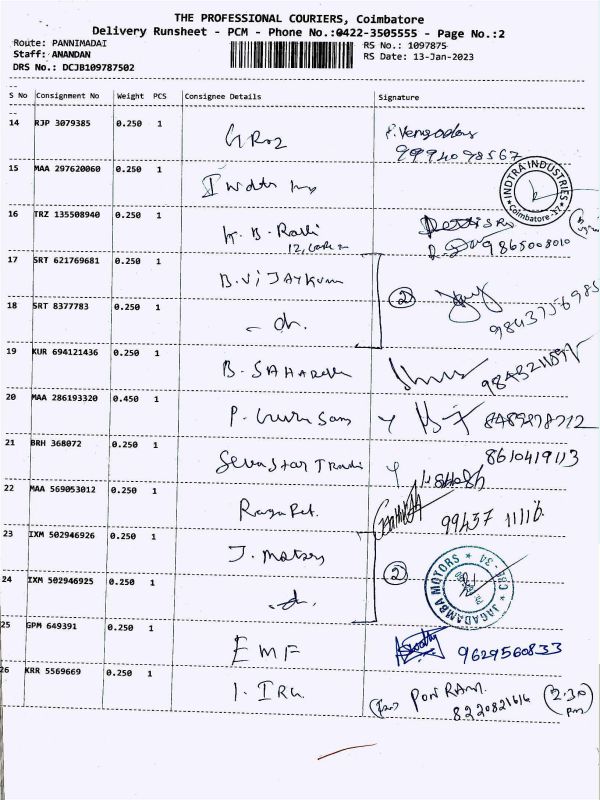 THE PROFESSIONAL COURIERS, Coimbatore
Delivery Runsheet - PCM - Phone No.:0422-3505555 - Page No.:2
Route: PANNIMADAI
RS No.: 1097875
Staff: ANANDAN
RS Date: 13-Jan-2023
DRS No.: DCJB109787502
S No Consignment No Weight PCS Consignee Details Signature
14 RJP 3079385 0.250 1
9994098567
15 MAA 297620060 0.250 1
INDTRA INDUSTRIES
Coimbatore-17
16 TRZ 135508940 0.250 1 K. B.
9865008010
17 SRT 621769681 0.250 1 B. VIJAYKUM
2
18 SRT 8377783 0.250 1 - do.
19 KUR 694121436 0.250 1 B. SAHAR
20 MAA 286193320 0.450 1 P.
8489278712
21 BRH 368072 0.250 1 Seven Star Tradi
8610419113
22 MAA 569053012 0.250 1
99437 11116
23 IXM 502946926 0.250 1 J. Motors
2
JAGADAMBA MOTORS CBE - 34
24 IXM 502946925 0.250 1 - do.
25 GPM 649391 0.250 1 EMF
9629560833
26 KRR 5569669 0.250 1
PON RAM.
8220821616
2.30 pm